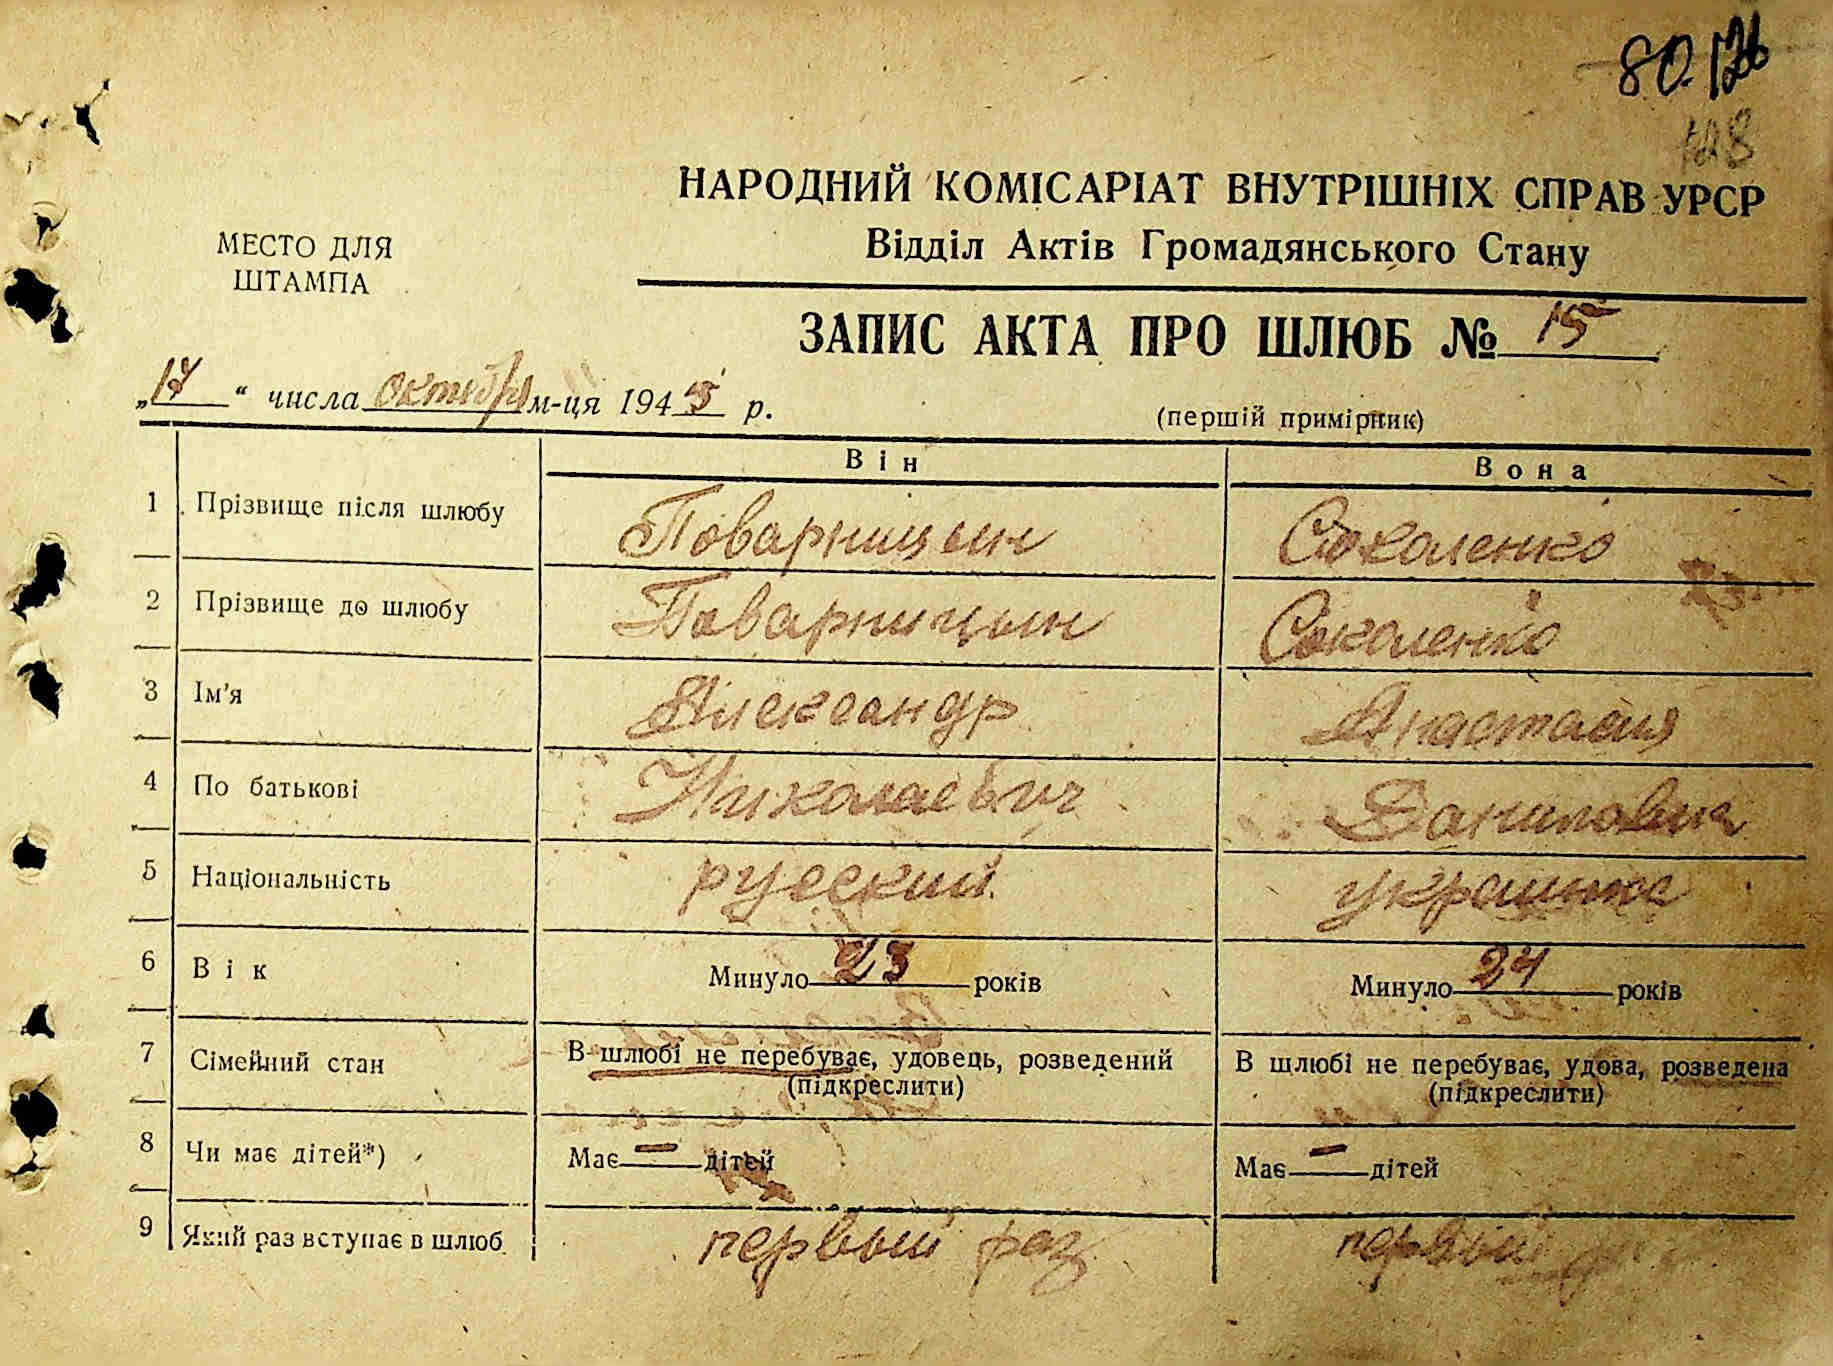 80. 126
128
НАРОДНИЙ КОМІСАРІАТ ВНУТРІШНІХ СПРАВ УРСР
Відділ Актів Громадянського Стану
МЕСТО ДЛЯ
ШТАМПА
ЗАПИС АКТА ПРО ШЛЮБ № 15
„17“ числа октября м-ця 1945 р.
(першій примірник)
Він Вона
1 Прізвище після шлюбу Поварницын Соколенко
2 Прізвище до шлюбу Поварницын Соколенко
3 Ім'я Александр Анастасия
4 По батькові Николаевич Даниловна
5 Національність русский украинка
6 Вік Минуло 23 років Минуло 24 років
7 Сімейний стан В шлюбі не перебуває, удовець, розведений В шлюбі не перебуває, удова, розведена
(підкреслити) (підкреслити)
8 Чи має дітей*) Має — дітей Має — дітей
9 Який раз вступає в шлюб первый раз первый